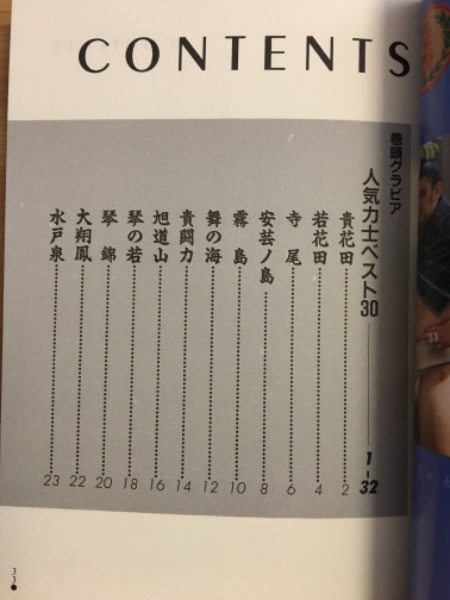 CONTENTS
巻頭グラビア
人気力士ベスト30 1-32
貴花田 2
若花田 4
寺尾 6
安芸ノ島 8
霧島 10
舞の海 12
貴闘力 14
旭道山 16
琴の若 18
琴錦 20
大翔鳳 22
水戸泉 23
33●